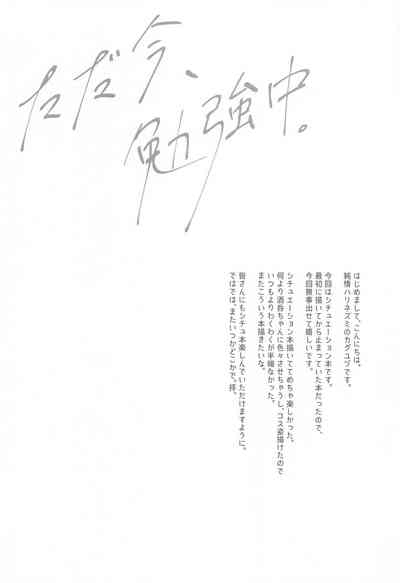 ただ今、
勉強中。
はじめまして、こんにちは。
純情ハリネズミのカグユヅです。
今回はシチュエーション本です。
最初に描いてから止まっていた本だったので、
今回無事出せて嬉しいです。
シチュエーション本描いててめちゃ楽しかった。
何より酒呑ちゃんに色々させちゃうし、コス姿描けたので
いつもよりわくわくが半端なかった。
またこういう本描きたいな。
皆さんにもシチュ本楽しんでいただけますように。
ではでは、またいつかどこかで。拝。